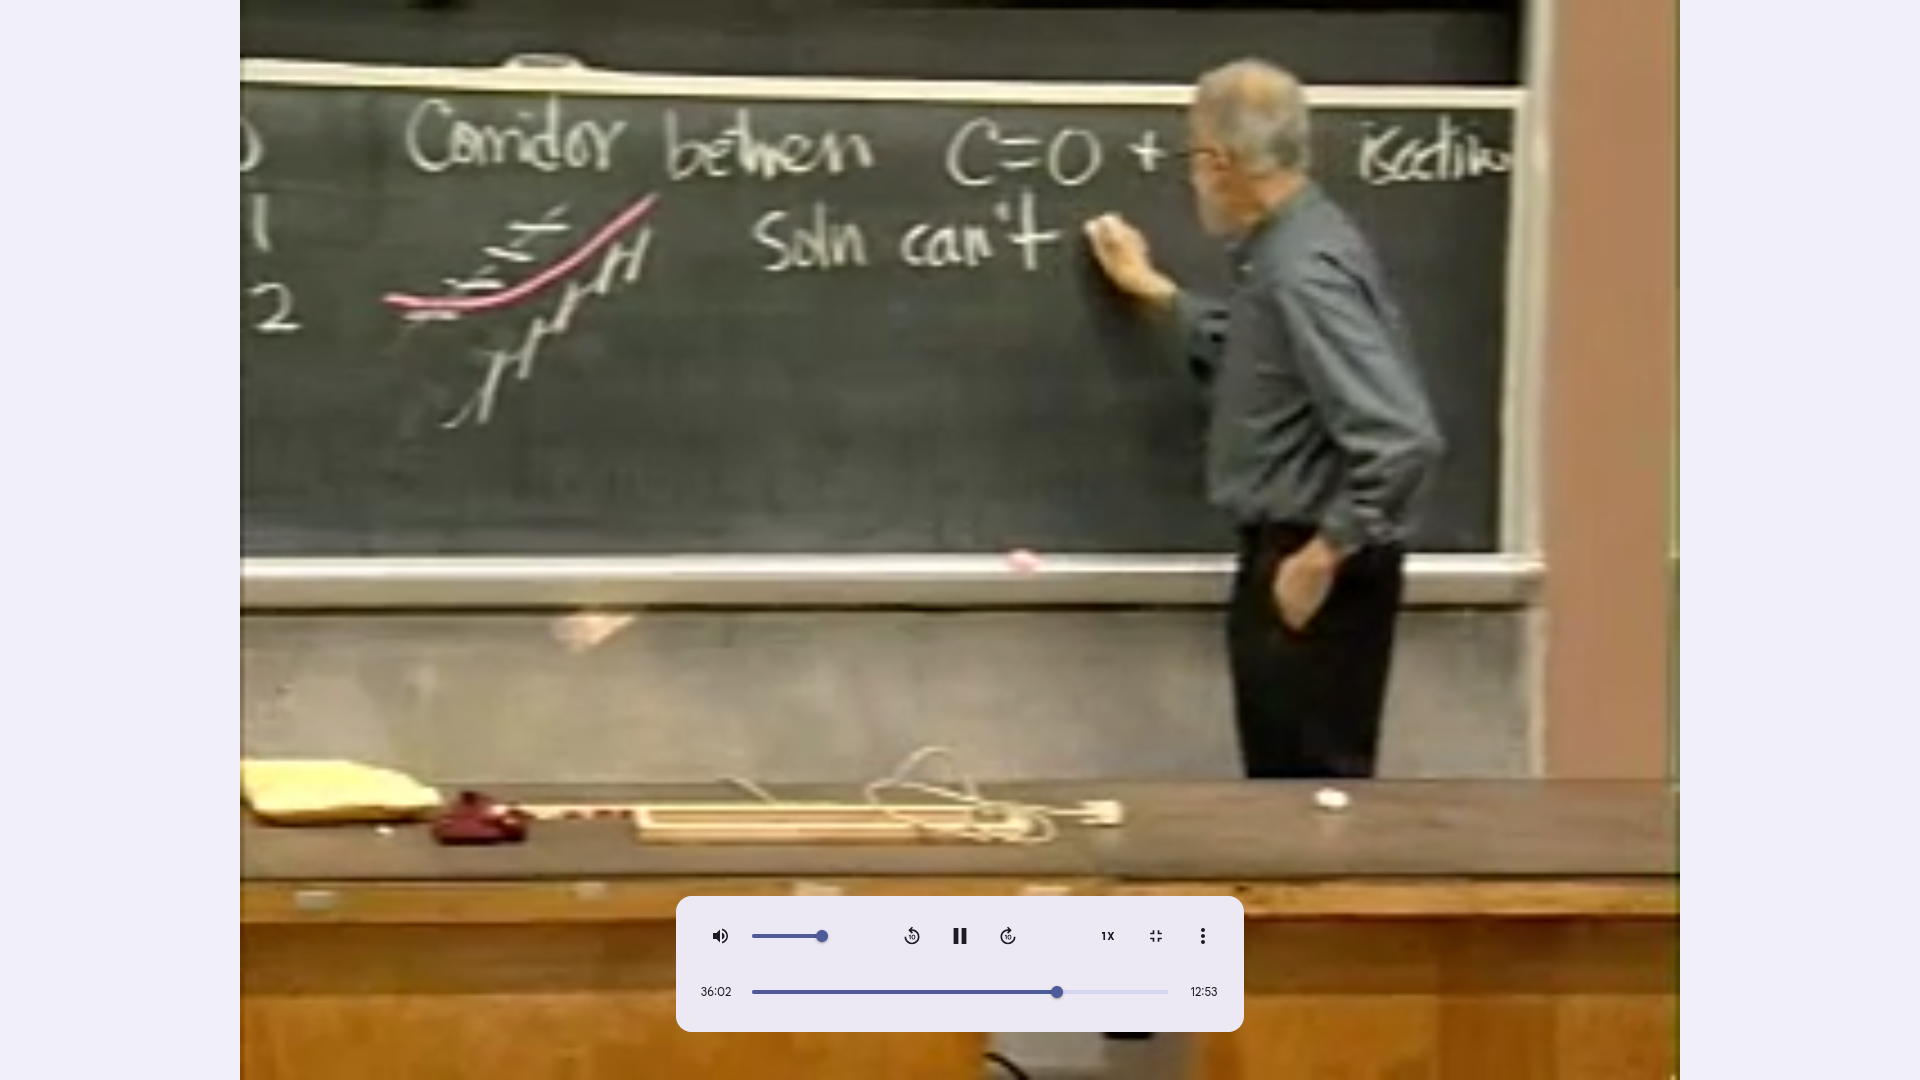 Corridor between C=0 +
1 Soln can't
2
1X
36:02 12:53